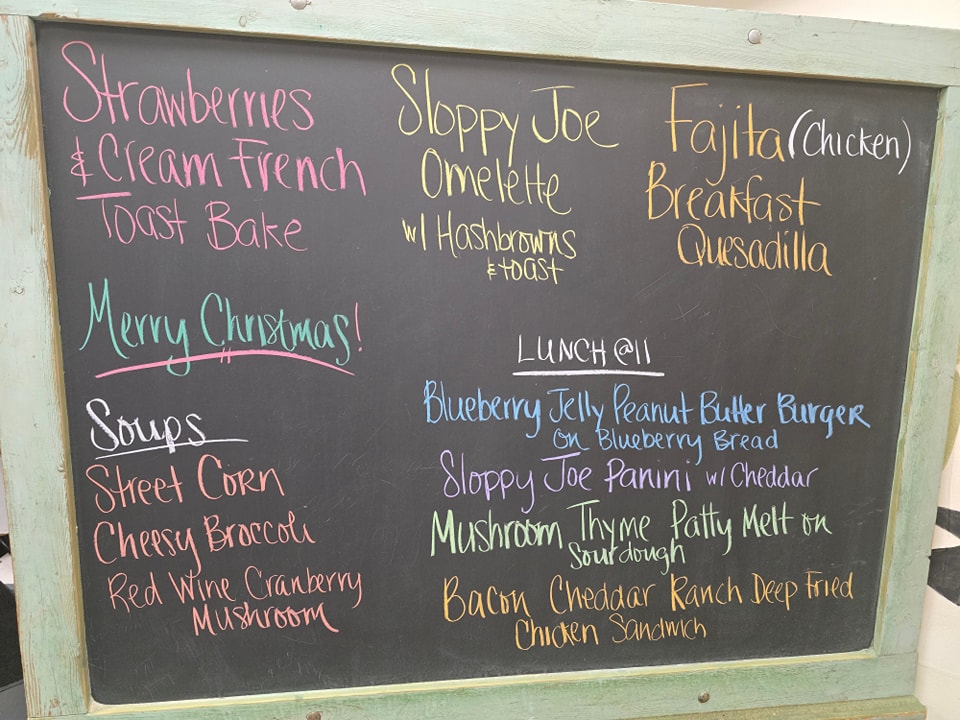 Strawberries
& Cream French
Toast Bake
Sloppy Joe
Omelette
w/ Hashbrowns
& toast
Fajita (Chicken)
Breakfast
Quesadilla
Merry Christmas!
Soups
Street Corn
Cheesy Broccoli
Red Wine Cranberry
Mushroom
LUNCH @11
Blueberry Jelly Peanut Butter Burger
on Blueberry Bread
Sloppy Joe Panini w/ Cheddar
Mushroom Thyme Patty Melt on
Sourdough
Bacon Cheddar Ranch Deep Fried
Chicken Sandwich